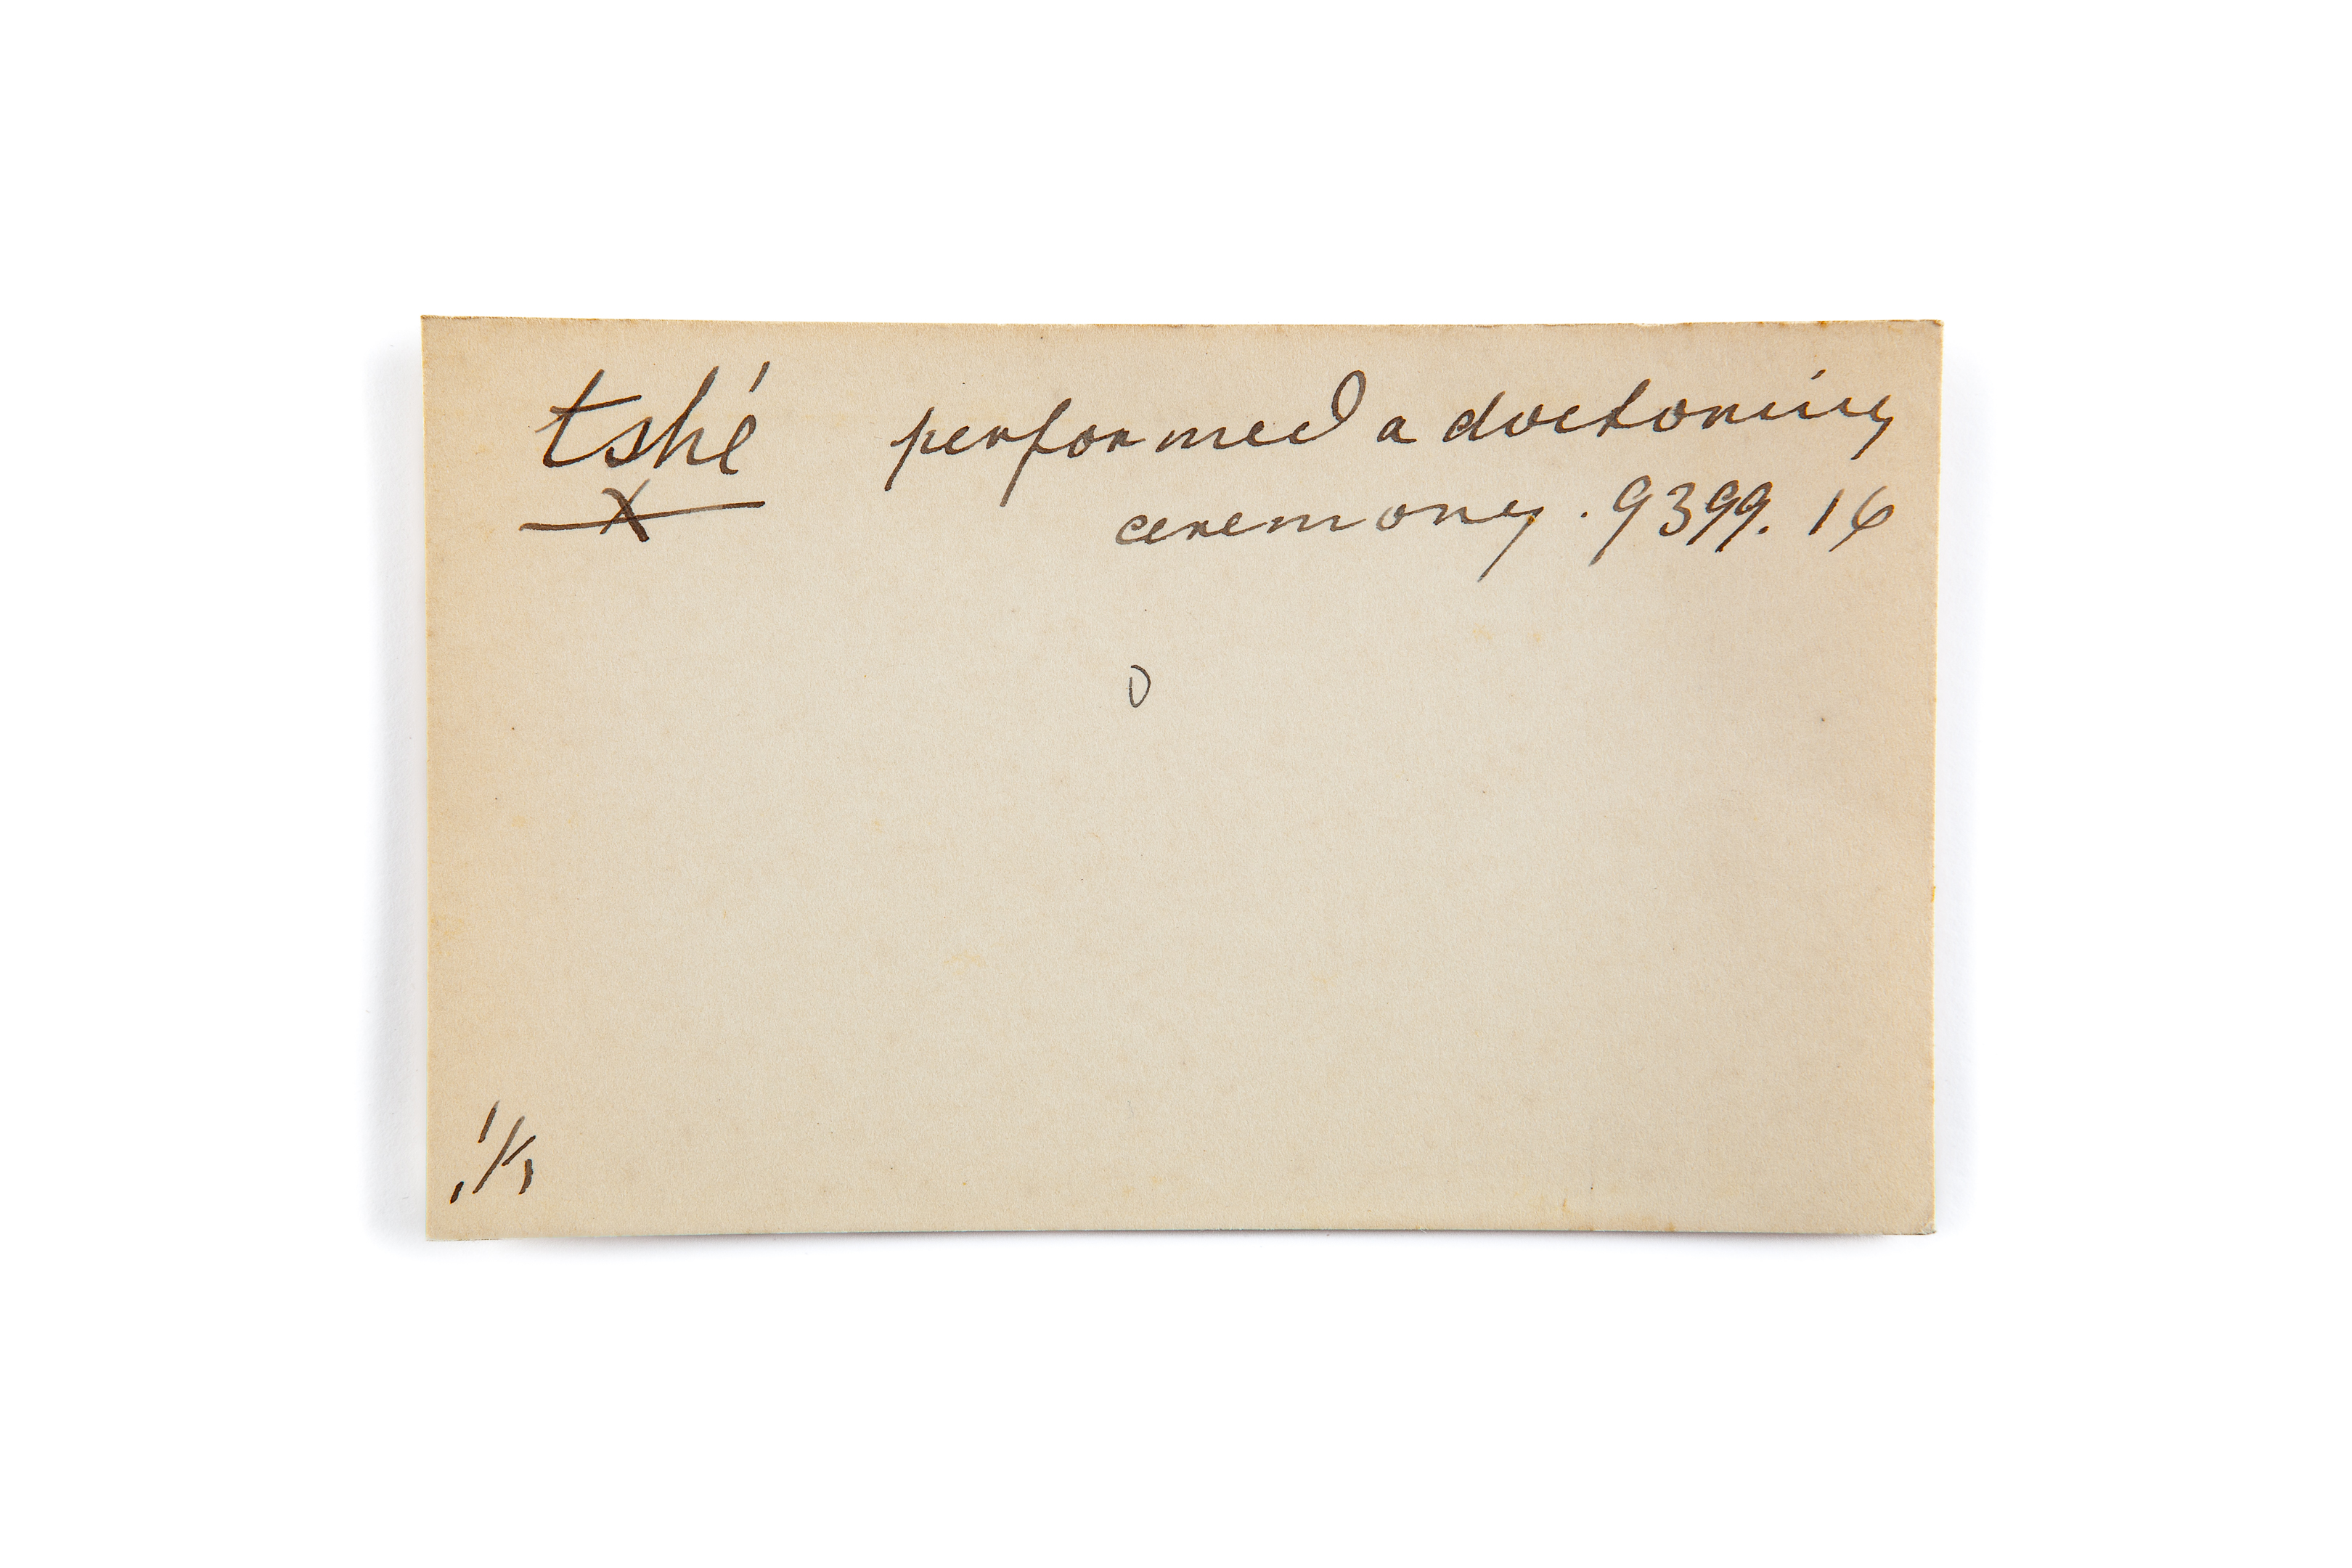 tshé performed a doctoring
X ceremony. 9399. 16
D